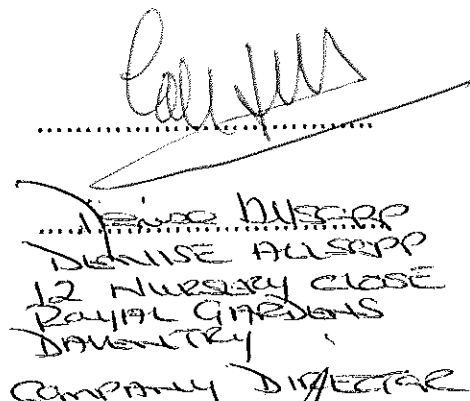 Denise Allsopp
DENISE ALLSOPP
12 NURSERY CLOSE
ROYAL GARDENS
DAVENTRY
COMPANY DIRECTOR